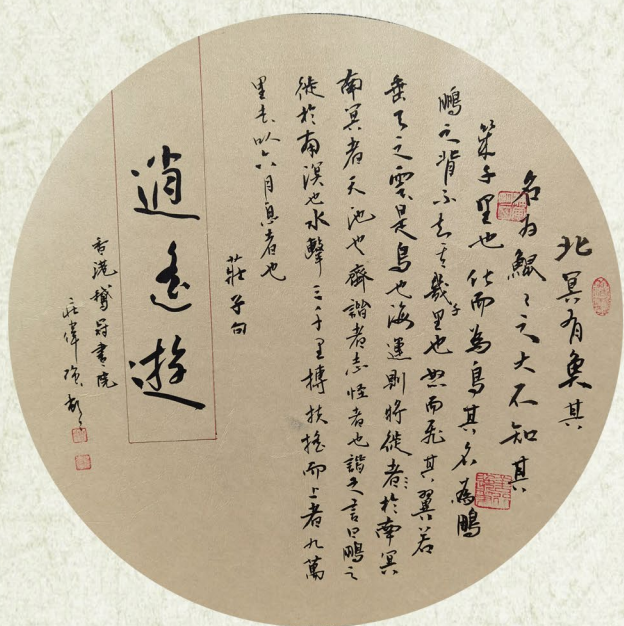 北冥有魚其
名为鯤〻之大不知其
幾千里也化而為鳥其名為鵬
鵬之背不知其幾千里也怒而飛其翼若
垂天之雲是鳥也海運則將徙者〻於南冥
南冥者天池也齊諧者志怪者也諧之言曰鵬之
徙於南溟也水擊三千里摶扶搖而上者九萬
里去以六月息者也
莊子句
逍遙遊
香港鵝冠書院
莊偉